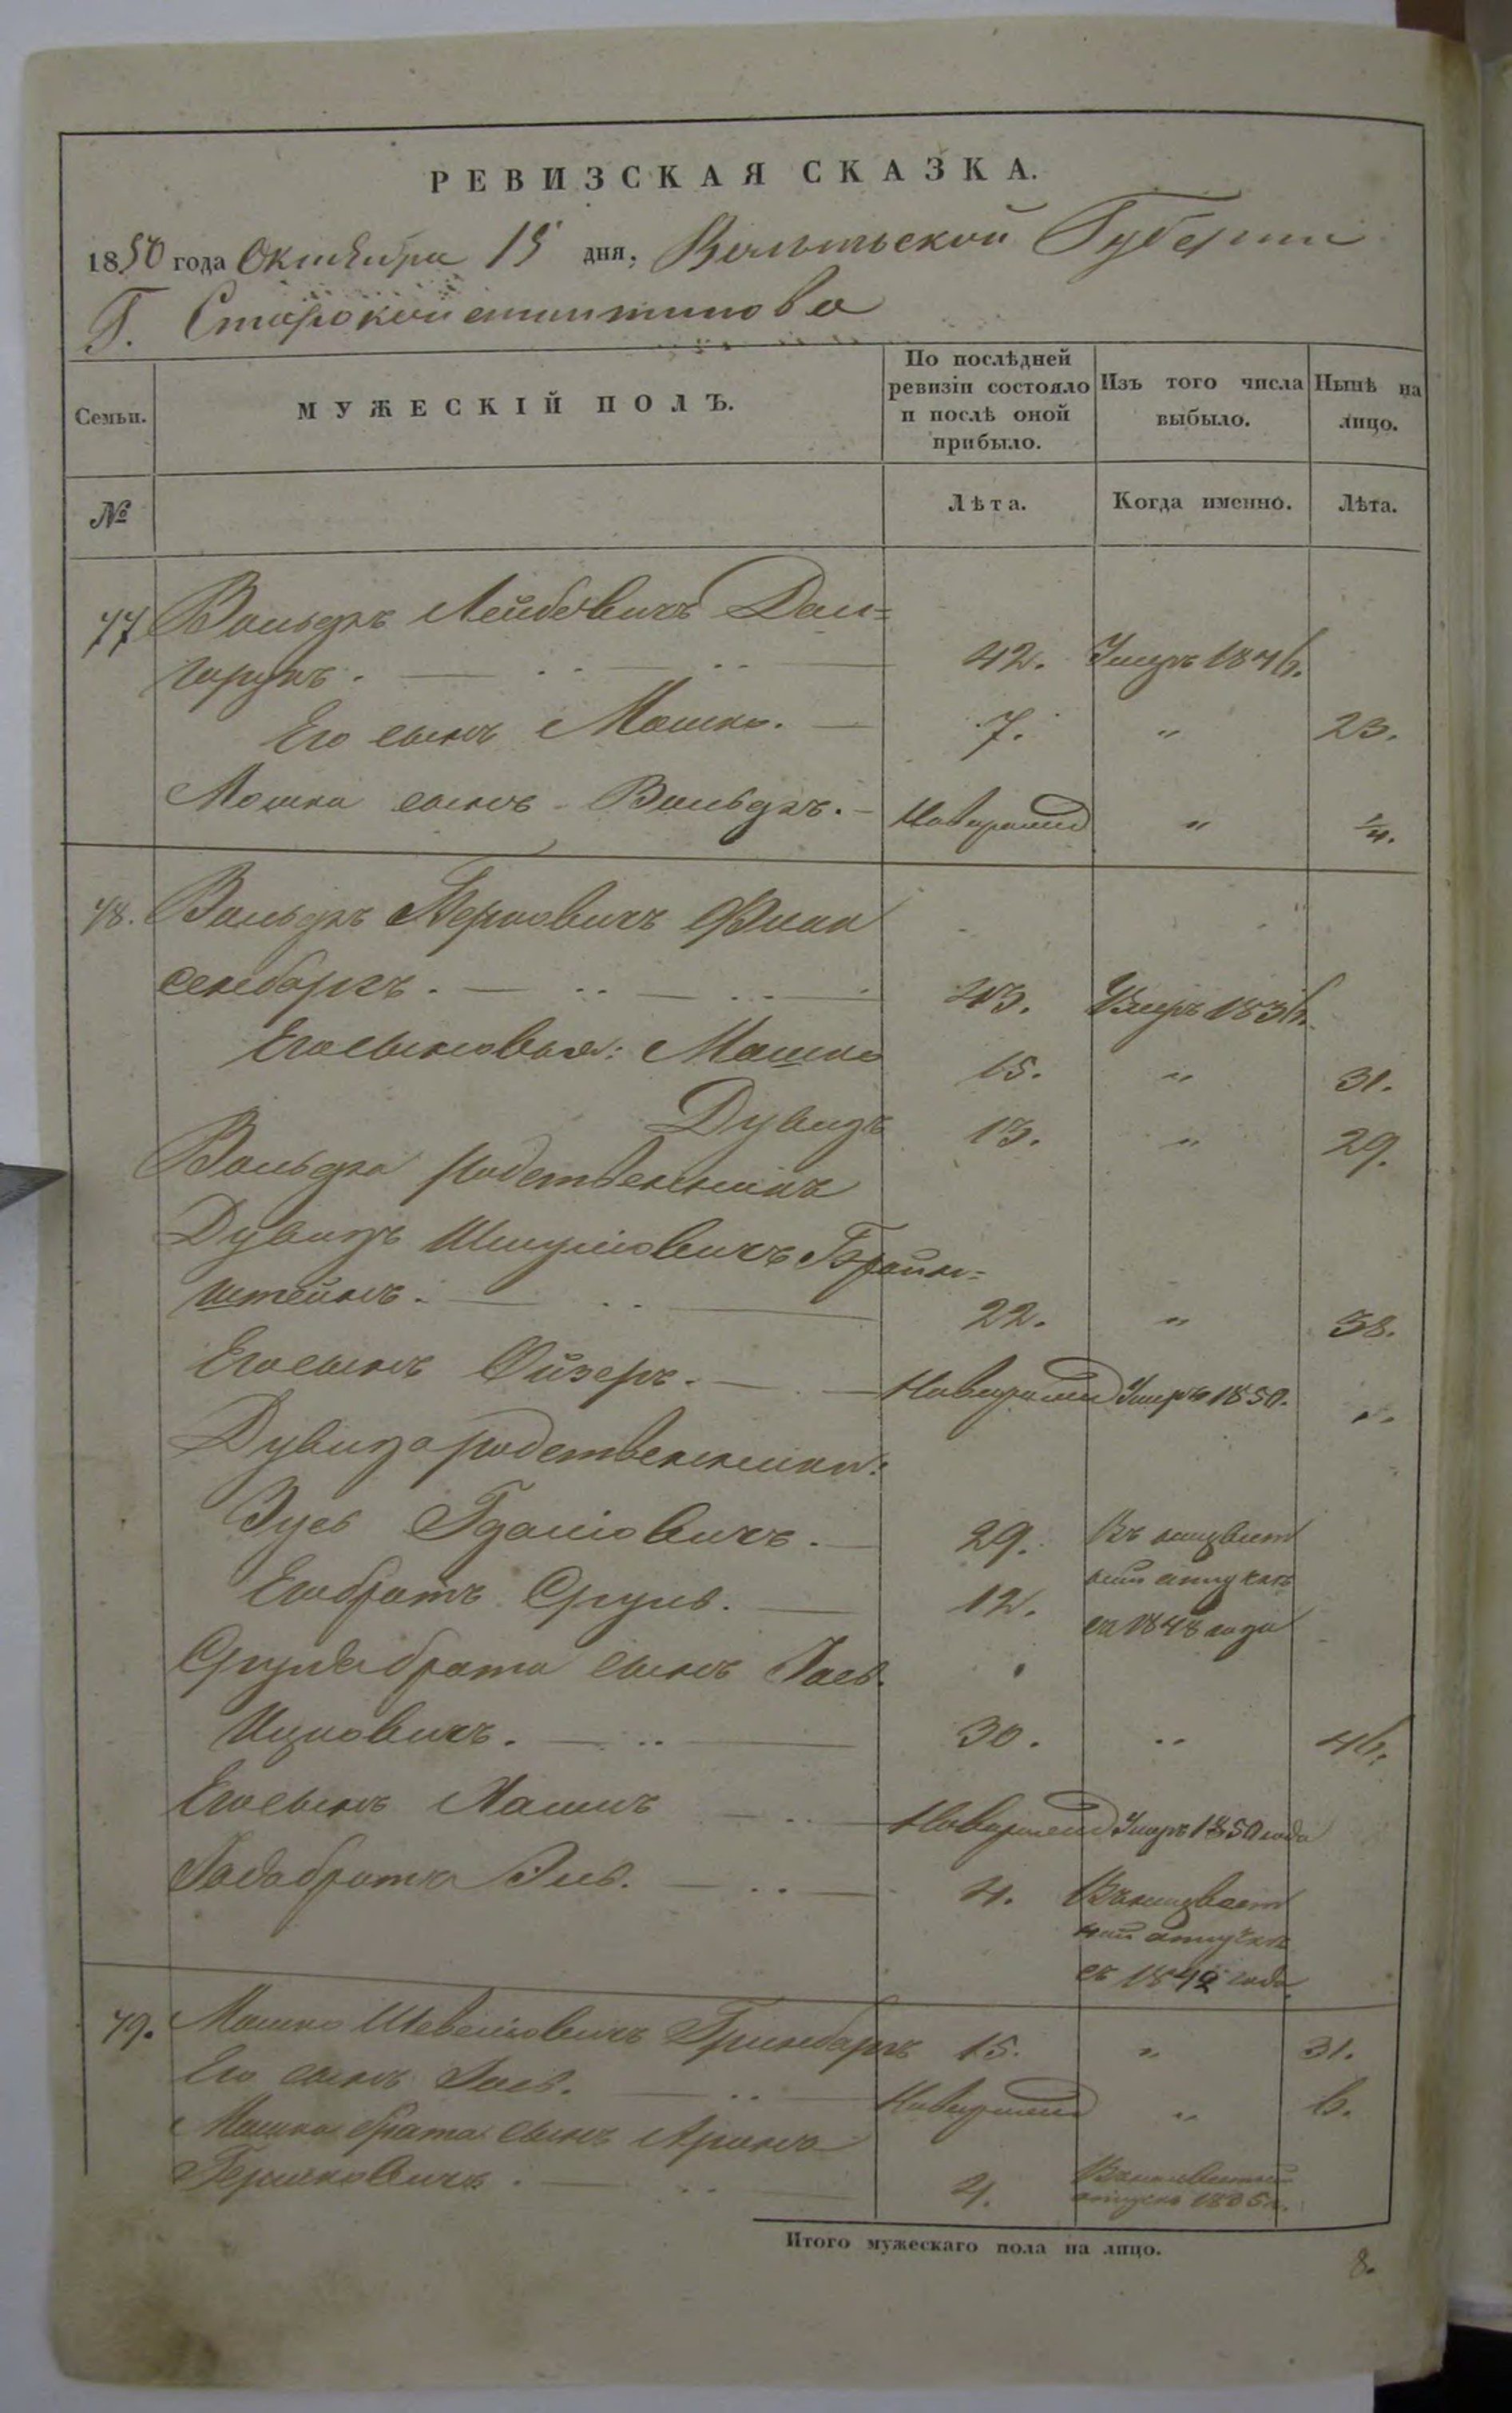 РЕВИЗСКАЯ СКАЗКА.
1850 года Октября 15 дня, Волынской Губернии
Г. Староконстантинова
Семьи. МУЖЕСКІЙ ПОЛЪ. По послѣдней ревизіи состояло и послѣ оной прибыло. Изъ того числа выбыло. Нынѣ на лицо.
№ Лѣта. Когда именно. Лѣта.
77 Вольфъ Лейбовичъ
42. Умеръ 1846.
Его сынъ Мошко. 7. " 23.
Мошка сынъ Вольфъ. Новорожд " 1/4.
78. Вольфъ Берковичъ
сенбаргъ. 43. Умеръ 1836.
Его сыновья: Мошко 15. " 31.
Дувидъ 13. " 29.
Вольфа родственникъ
Дувидъ Шмулiовичъ Бройн=
штейнъ. 22. " 38.
Его сынъ Ойзеръ. Новорожд Умеръ 1850. "
Дувида родственники:
Зусь Гдалiовичъ. 29. Въ неизвѣст
Его братъ Сруль. 12. ной отлучкѣ
съ 1848 года
Сруля брата сынъ
Ицковичъ. 30. " 46.
Его сынъ Новорожд Умеръ 1850 года
братъ 4. Въ неизвѣст
ной отлучкѣ
съ 1842 года
79. Мошко Шевелiовичъ Гринбаргъ 15. " 31.
Его сынъ Новорожд " 6.
Мошка брата сынъ Аронъ
Гершковичъ. 4. 1835
Итого мужескаго пола на лицо. 8.